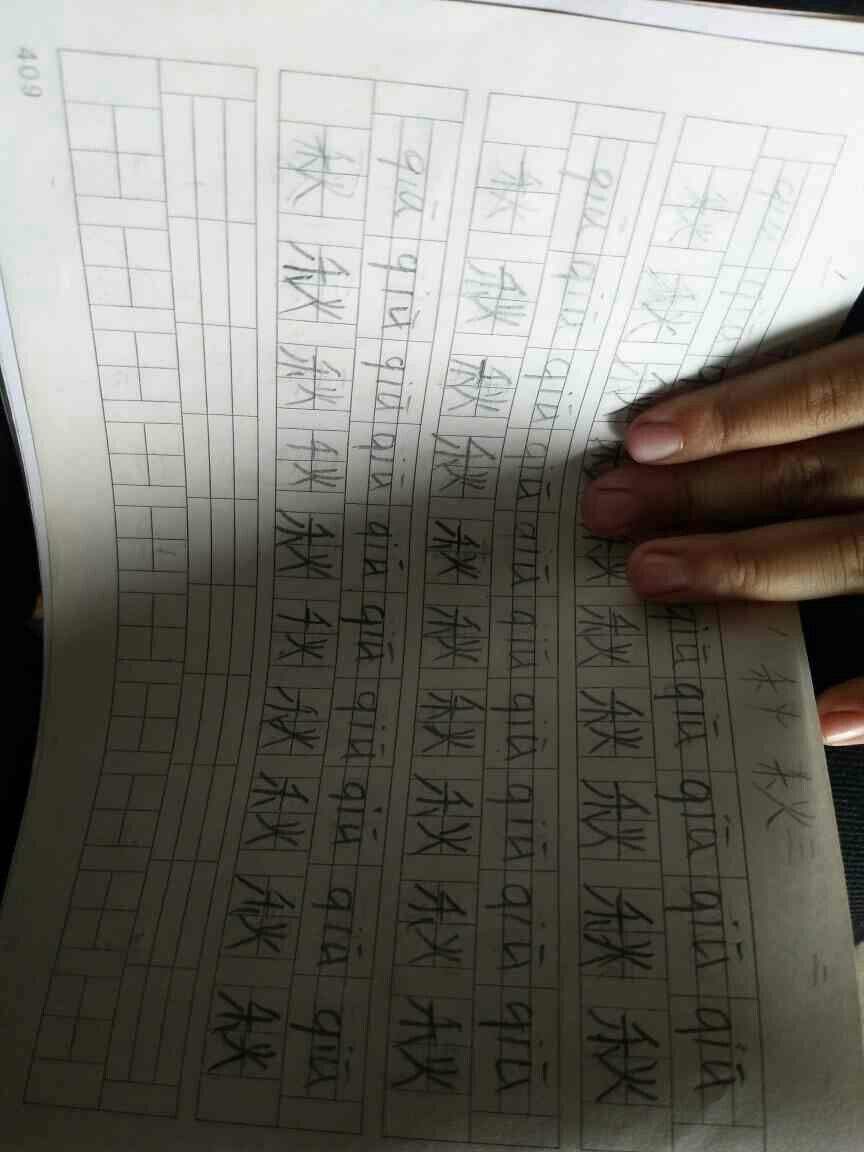 秋
qiū qiū qiū qiū qiū qiū qiū
秋 秋 秋 秋 秋 秋 秋 秋 秋
qiū qiū qiū qiū qiū qiū qiū qiū qiū qiū
秋 秋 秋 秋 秋 秋 秋 秋 秋 秋
qiū qiū qiū qiū qiū qiū qiū qiū qiū qiū
秋 秋 秋 秋 秋 秋 秋 秋 秋 秋
409